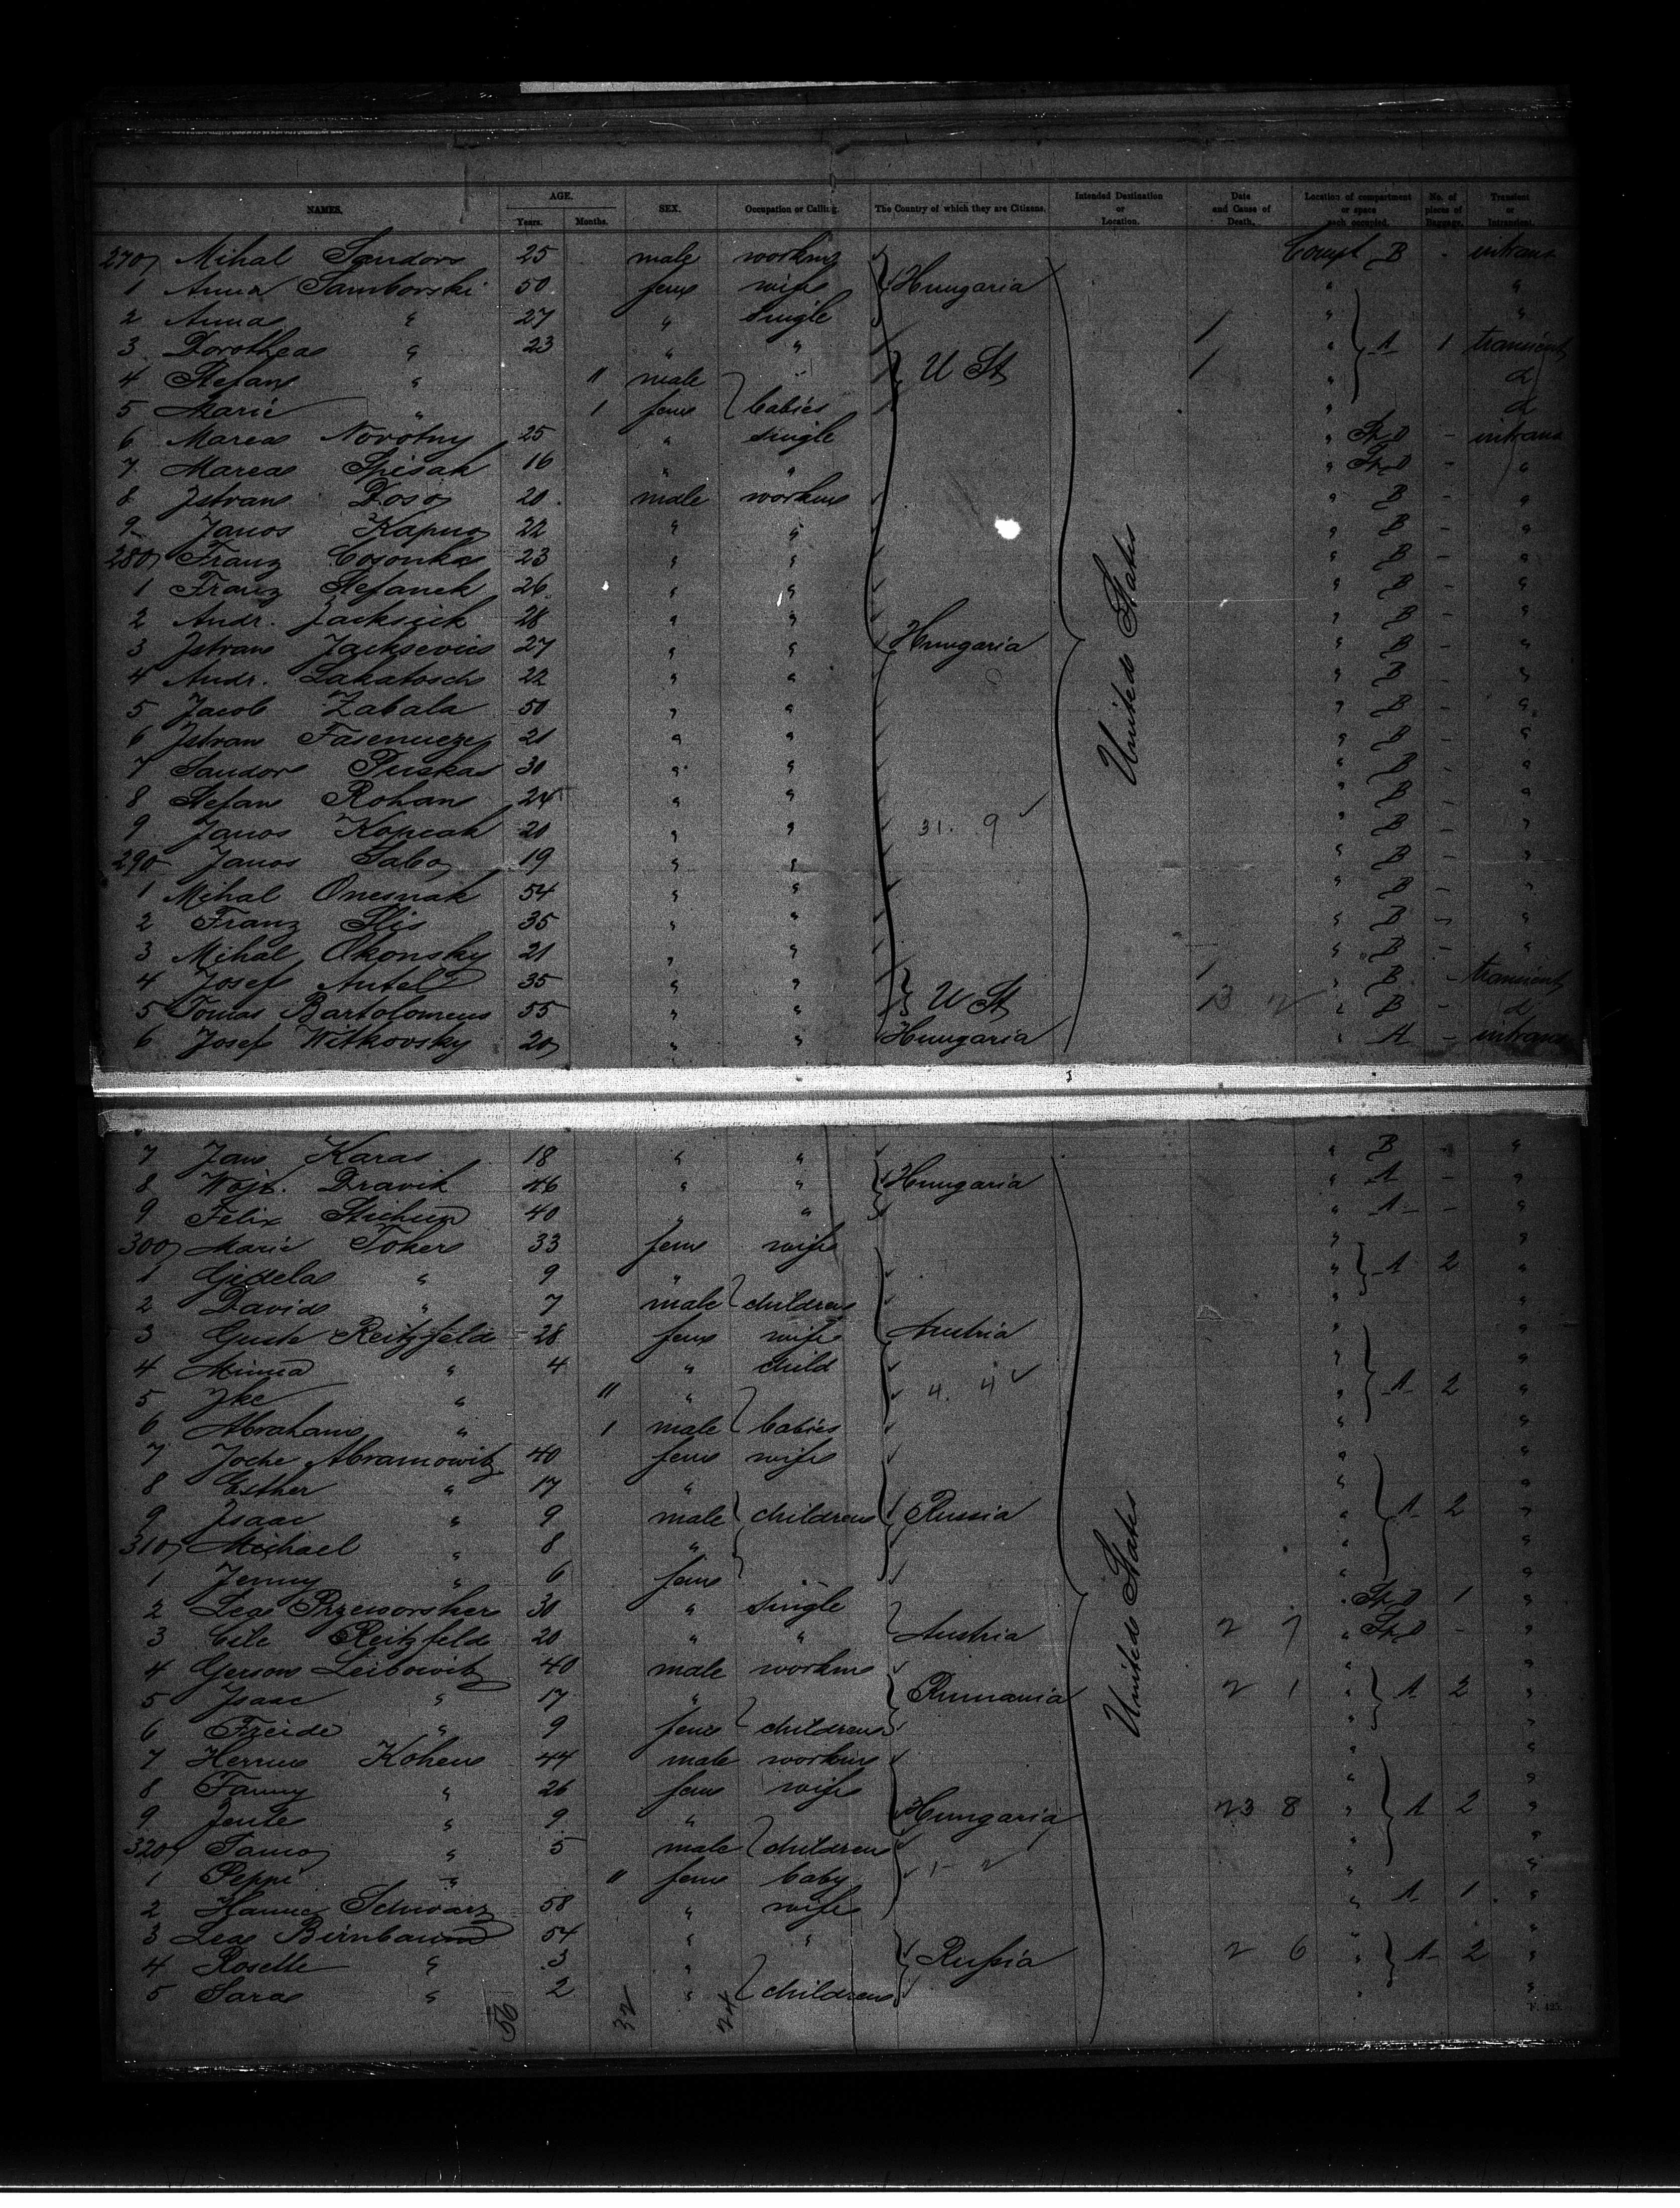 NAMES. AGE. Years. Months. SEX. Occupation or Calling. The Country of which they are Citizens. Intended Destination or Location. Date and Cause of Death. Location of compartment or space each occupied. No. of pieces of Baggage. Transient or Intransient.
270 Mihal Sandor 25 male workm Compt B - intrans
1 Anna Samborski 50 fem wife Hungaria " "
2 Anna " 27 " single " "
3 Dorothea " 23 " " " A 1 transient
4 Stefan " 11 male U St " d
5 Marie " 1 fem babies " d
6 Marea Novotny 25 " single " St D - intrans
7 Marea Spisak 16 " " " St D - "
8 Istvan Doso 20 male workm " B - "
9 Janos 22 " " " B - "
280 Franz 23 " " " B - "
1 Franz Stefanek 26 " " " B - "
2 Andr. 28 " " " B - "
3 Istvan 27 " " Hungaria " B - "
4 Andr. Lakatosch 22 " " " B - "
5 Jacob Zabala 50 " " " B - "
6 Istvan 21 " " " B - "
7 Sandor Puskas 30 " " " B - "
8 Stefan Rohan 24 " " " B - "
9 Janos Kopcak 20 " " 31. 9 " B - "
290 Janos Sabo 19 " " " B - "
1 Mihal Onesnak 54 " " " B - "
2 Franz 35 " " " B - "
3 Mihal Okonsky 21 " " " B - "
4 Josef Antel 35 " " " B - transient
5 Tomas Bartolomeus 55 " " U St " B - d
6 Josef Witkovsky 20 " " Hungaria " A - intrans
United States
7 Jan Karas 18 " " " B - "
8 Wojt. Dravik 46 " " Hungaria " A - "
9 Felix 40 " " " A - "
300 Marie Toker 33 fem wife " "
1 Gidela " 9 " " A 2 "
2 David " 7 male children " "
3 Guste Reitzfeld 28 fem wife Austria " "
4 Minna " 4 " child " "
5 Ike " 11 " 4. 4 " A 2 "
6 Abraham " 1 male babies " "
7 Joche Abramowitz 40 fem wife " "
8 Esther " 17 " " "
9 Isaac " 9 male children Russia " A 2 "
310 Michael " 8 " " "
1 Jenny " 6 fem " "
2 Lea Przeworsker 30 " single St D 1 "
3 Cile Reitzfeld 20 " " Austria 2 7 " St D - "
4 Gerson Leibowitz 40 male workm " "
5 Isaac " 17 " Rumania 2 1 " A 2 "
6 Freide " 9 fem children " "
7 Herm Kohen 44 male workm " "
8 Fanny " 26 fem wife " "
9 Jente " 9 " Hungaria 23 8 " A 2 "
320 " 5 male children " "
1 Peppi " 11 fem baby " "
2 Schwarz 58 " wife " A 1 "
3 Lea Birnbaum 54 " " "
4 Roselle " 3 " Russia 2 6 " A 2 "
5 Sara " 2 " children " "
United States
56 32 24
F. 425.